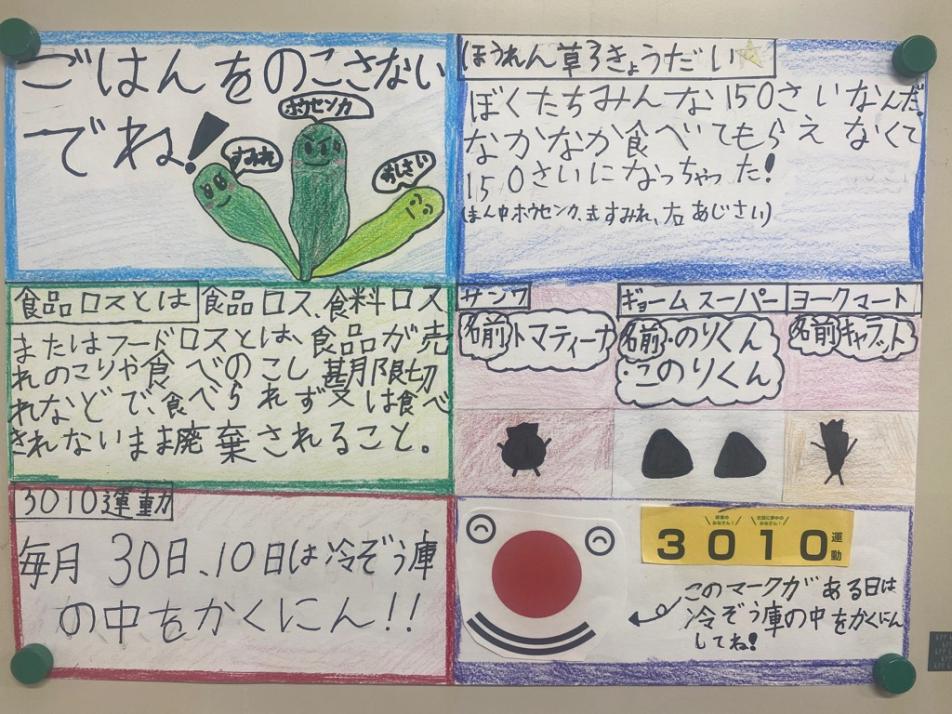 ごはんをのこさない
でね!
ホウセンカ
すみれ
あじさい
ほうれん草3きょうだい
ぼくたちみんな150さいなんだ。
なかなか食べてもらえなくて
150さいになっちゃった!
(まん中ホウセンカ、左すみれ、右あじさい)
食品ロスとは 食品ロス、食料ロス
またはフードロスとは、食品が売
れのこりや食べのこし、期限切
れなどで、食べられず又は食べ
されないまま廃棄されること。
サンワ
名前 トマティーナ
ギョームスーパー
名前・のりくん
・このりくん
ヨークマート
名前 キャラット
3010運動
毎月30日、10日は冷ぞう庫
の中をかくにん!!
3010運動
このマークがある日は
冷ぞう庫の中をかくにん
してね!